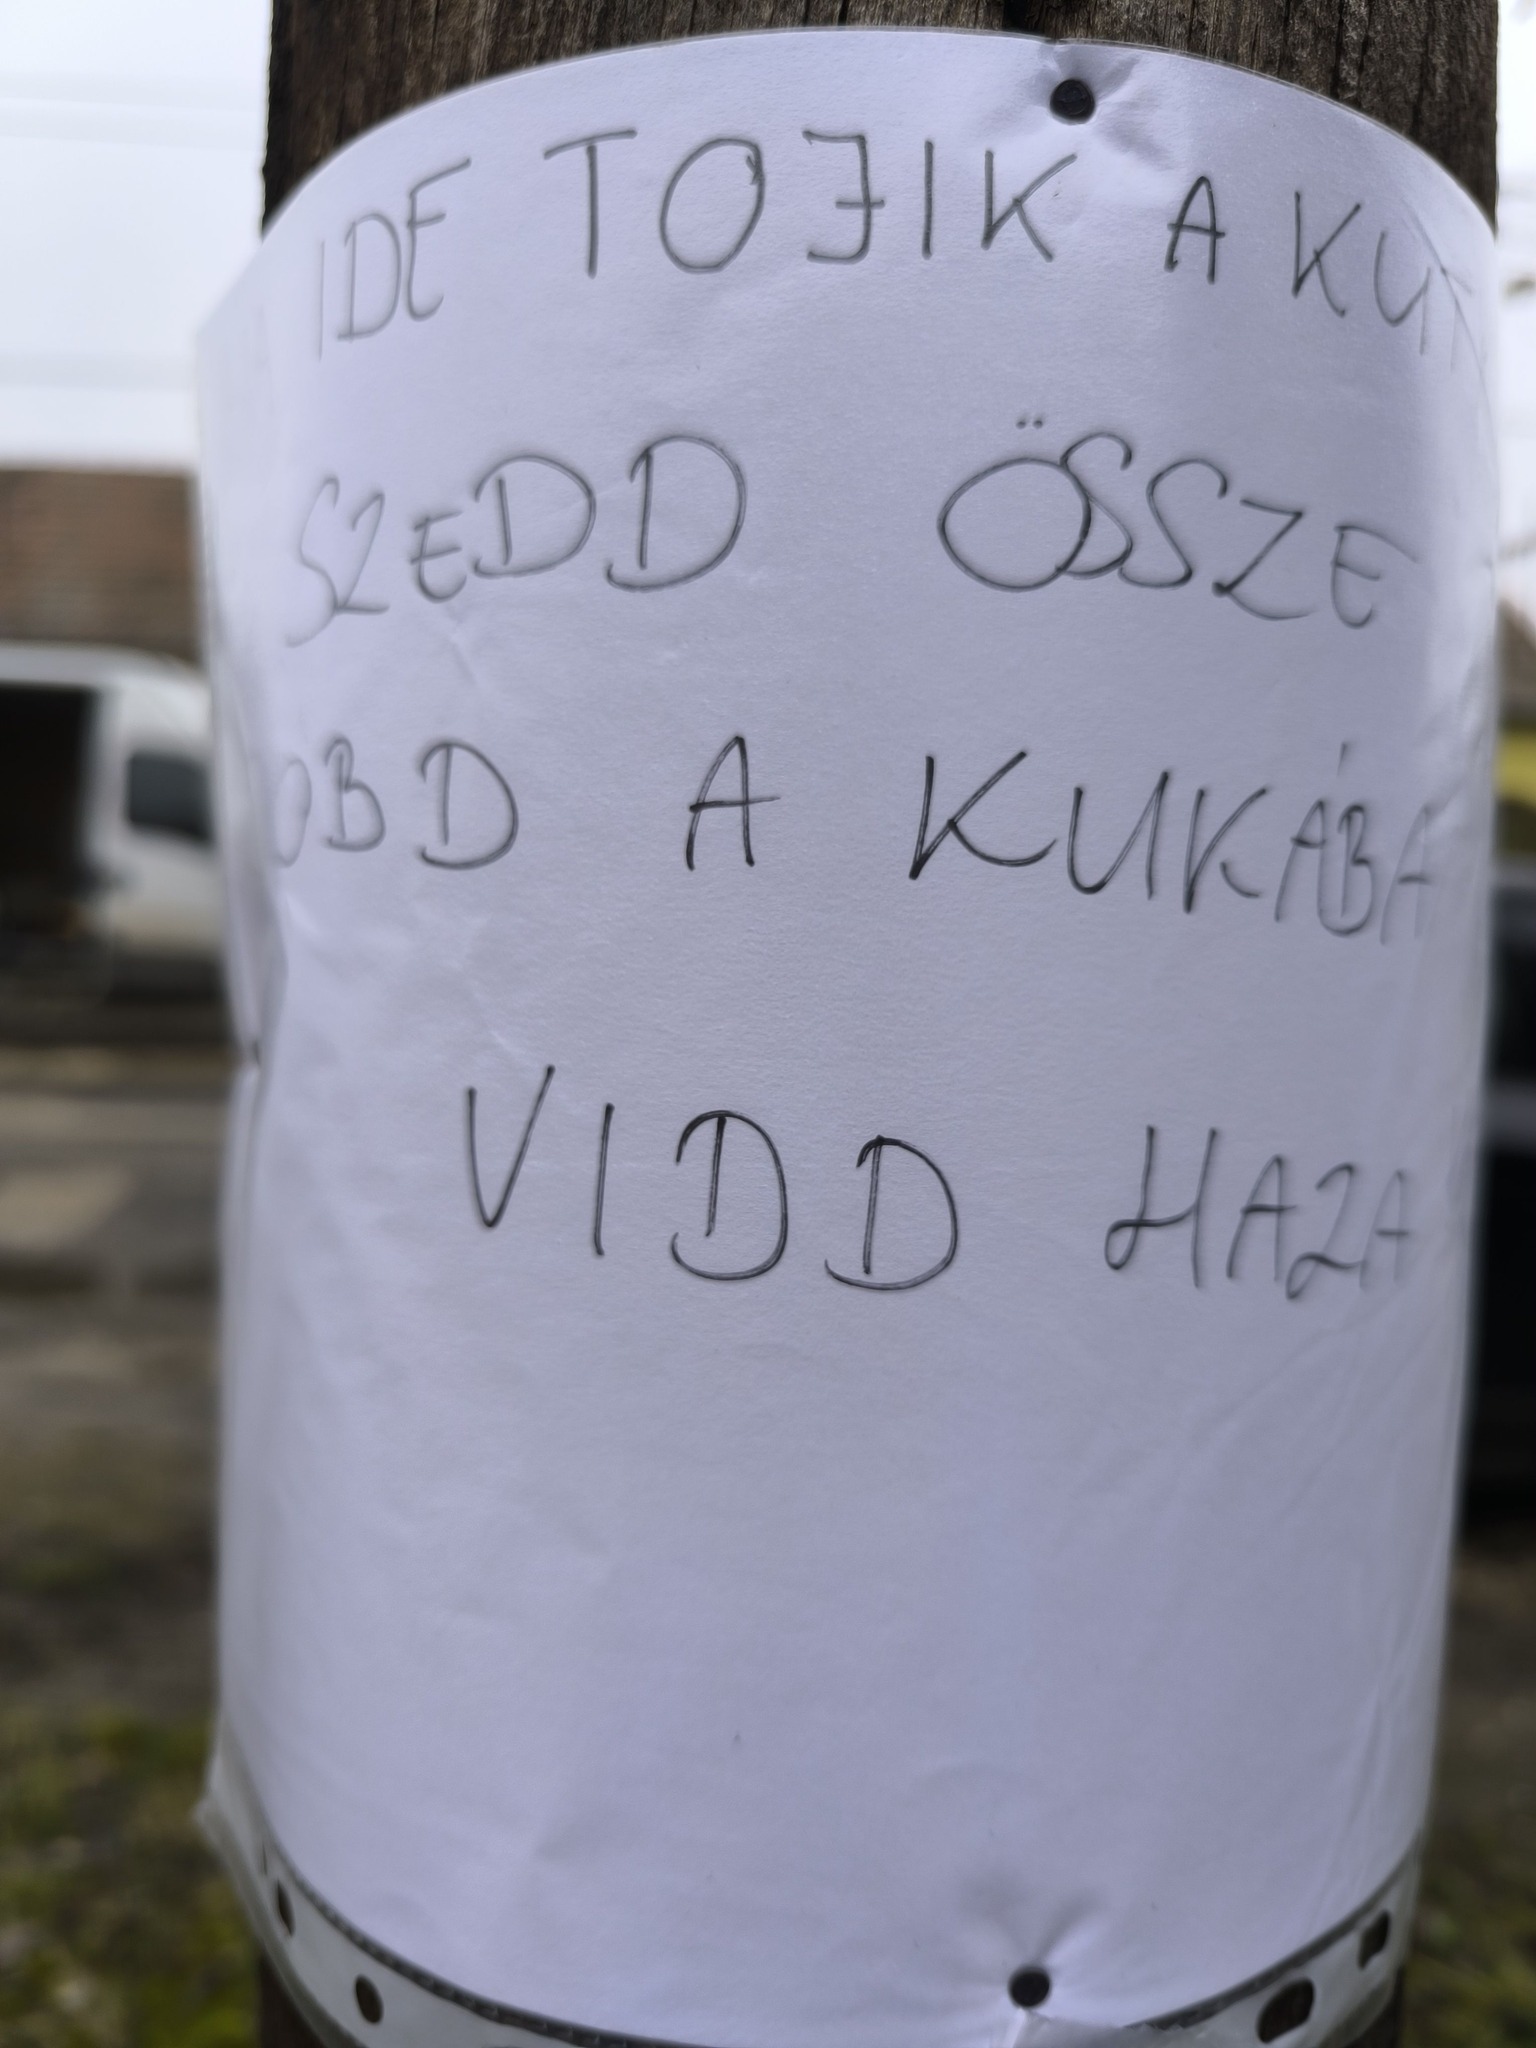 IDE TOJIK A KUT
SZEDD ÖSSZE
OBD A KUKÁBA
VIDD HAZA